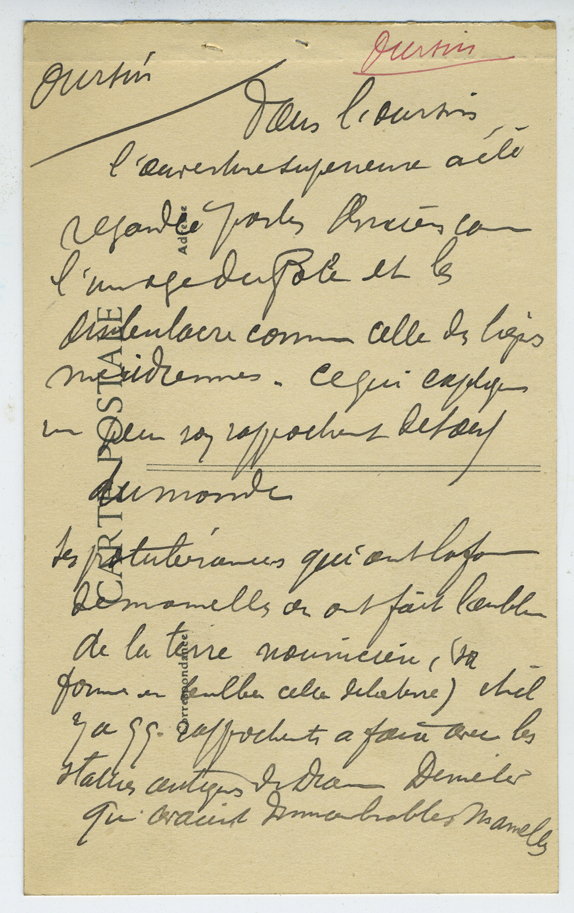 oursin
Oursin
Dans l'oursin
l'ouverture superieure a été
regardée par les Anciens com
l'image du Pole et les
comme celle des lignes
méridiennes. Ce qui explique
un peu son rapprochent de l'oeuf
du monde
Ses protubérances qui ont la form
de mamelles en ont fait l'emblem
de la terre nourriciere, (sa
forme en celle de la terre) et il
y a qq. rapprochents a faire avec les
statues antiques de Demeter
qui avaient d'innombrables mamelles
CARTE POSTALE
Adresse
Correspondance